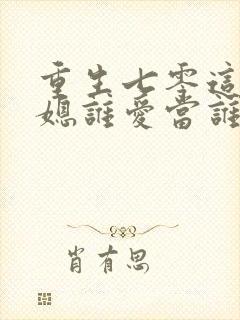 重生七零這
媳誰愛當誰
肖有思